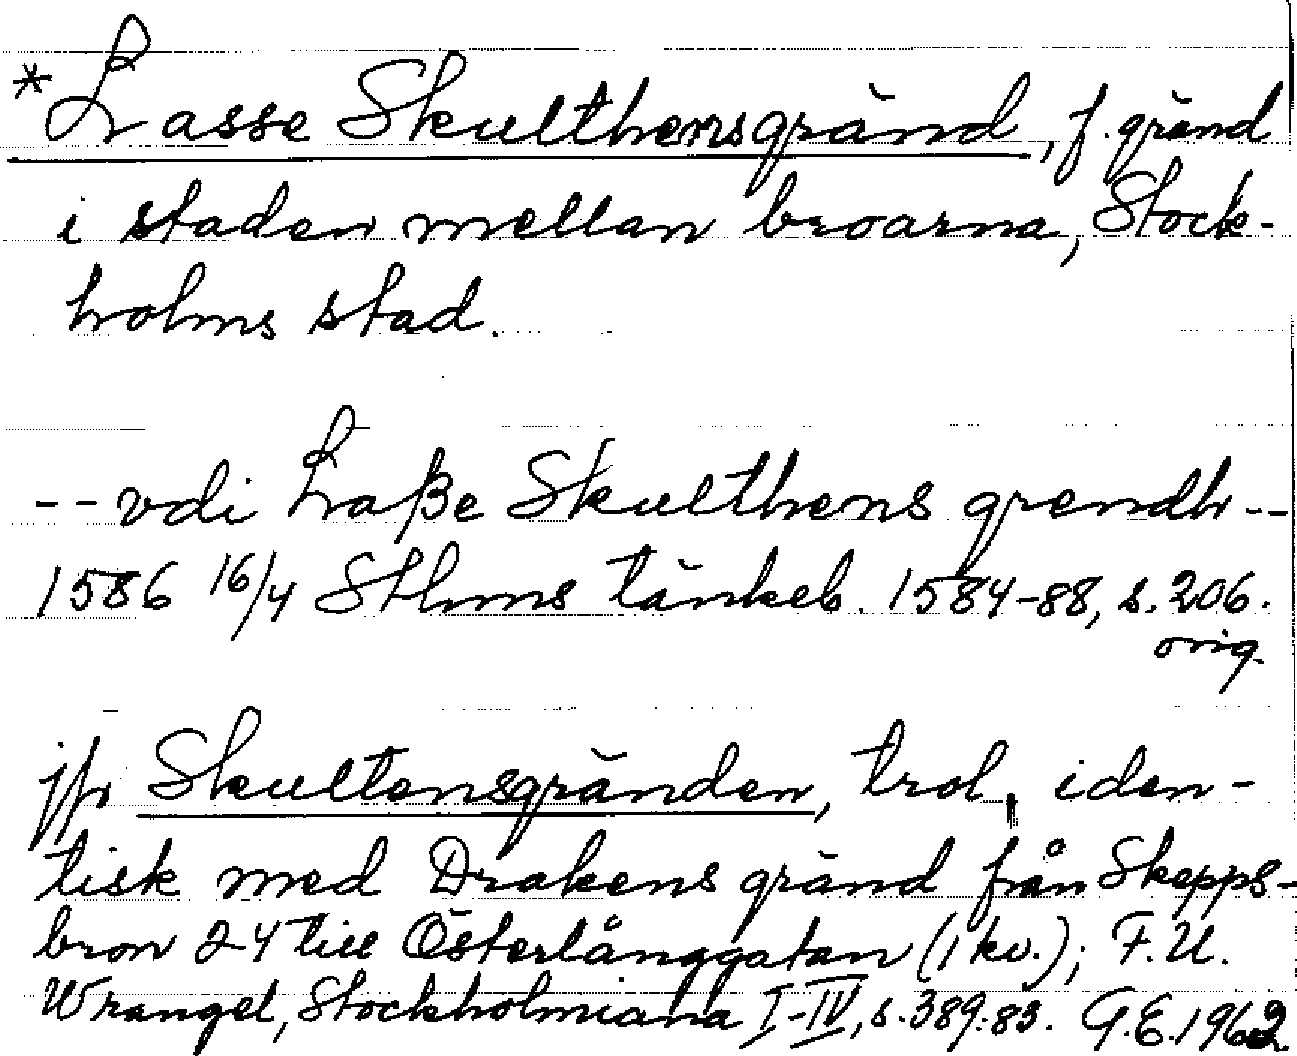 *Lasse Skulthensgränd, f. gränd
i staden mellan broarna, Stock-
holms stad.
--vdi Laße Skulthens grendh--
1586 16/4 Sthms tänkeb. 1584-88, s. 206.
orig.
jfr Skultensgränden, trol. iden-
tisk med Drakens gränd från Skepps-
bron 24 till Österlånggatan (1 kv.); F.U.
Wrangel, Stockholmiana I-IV, s. 389. 83. G.E. 1962